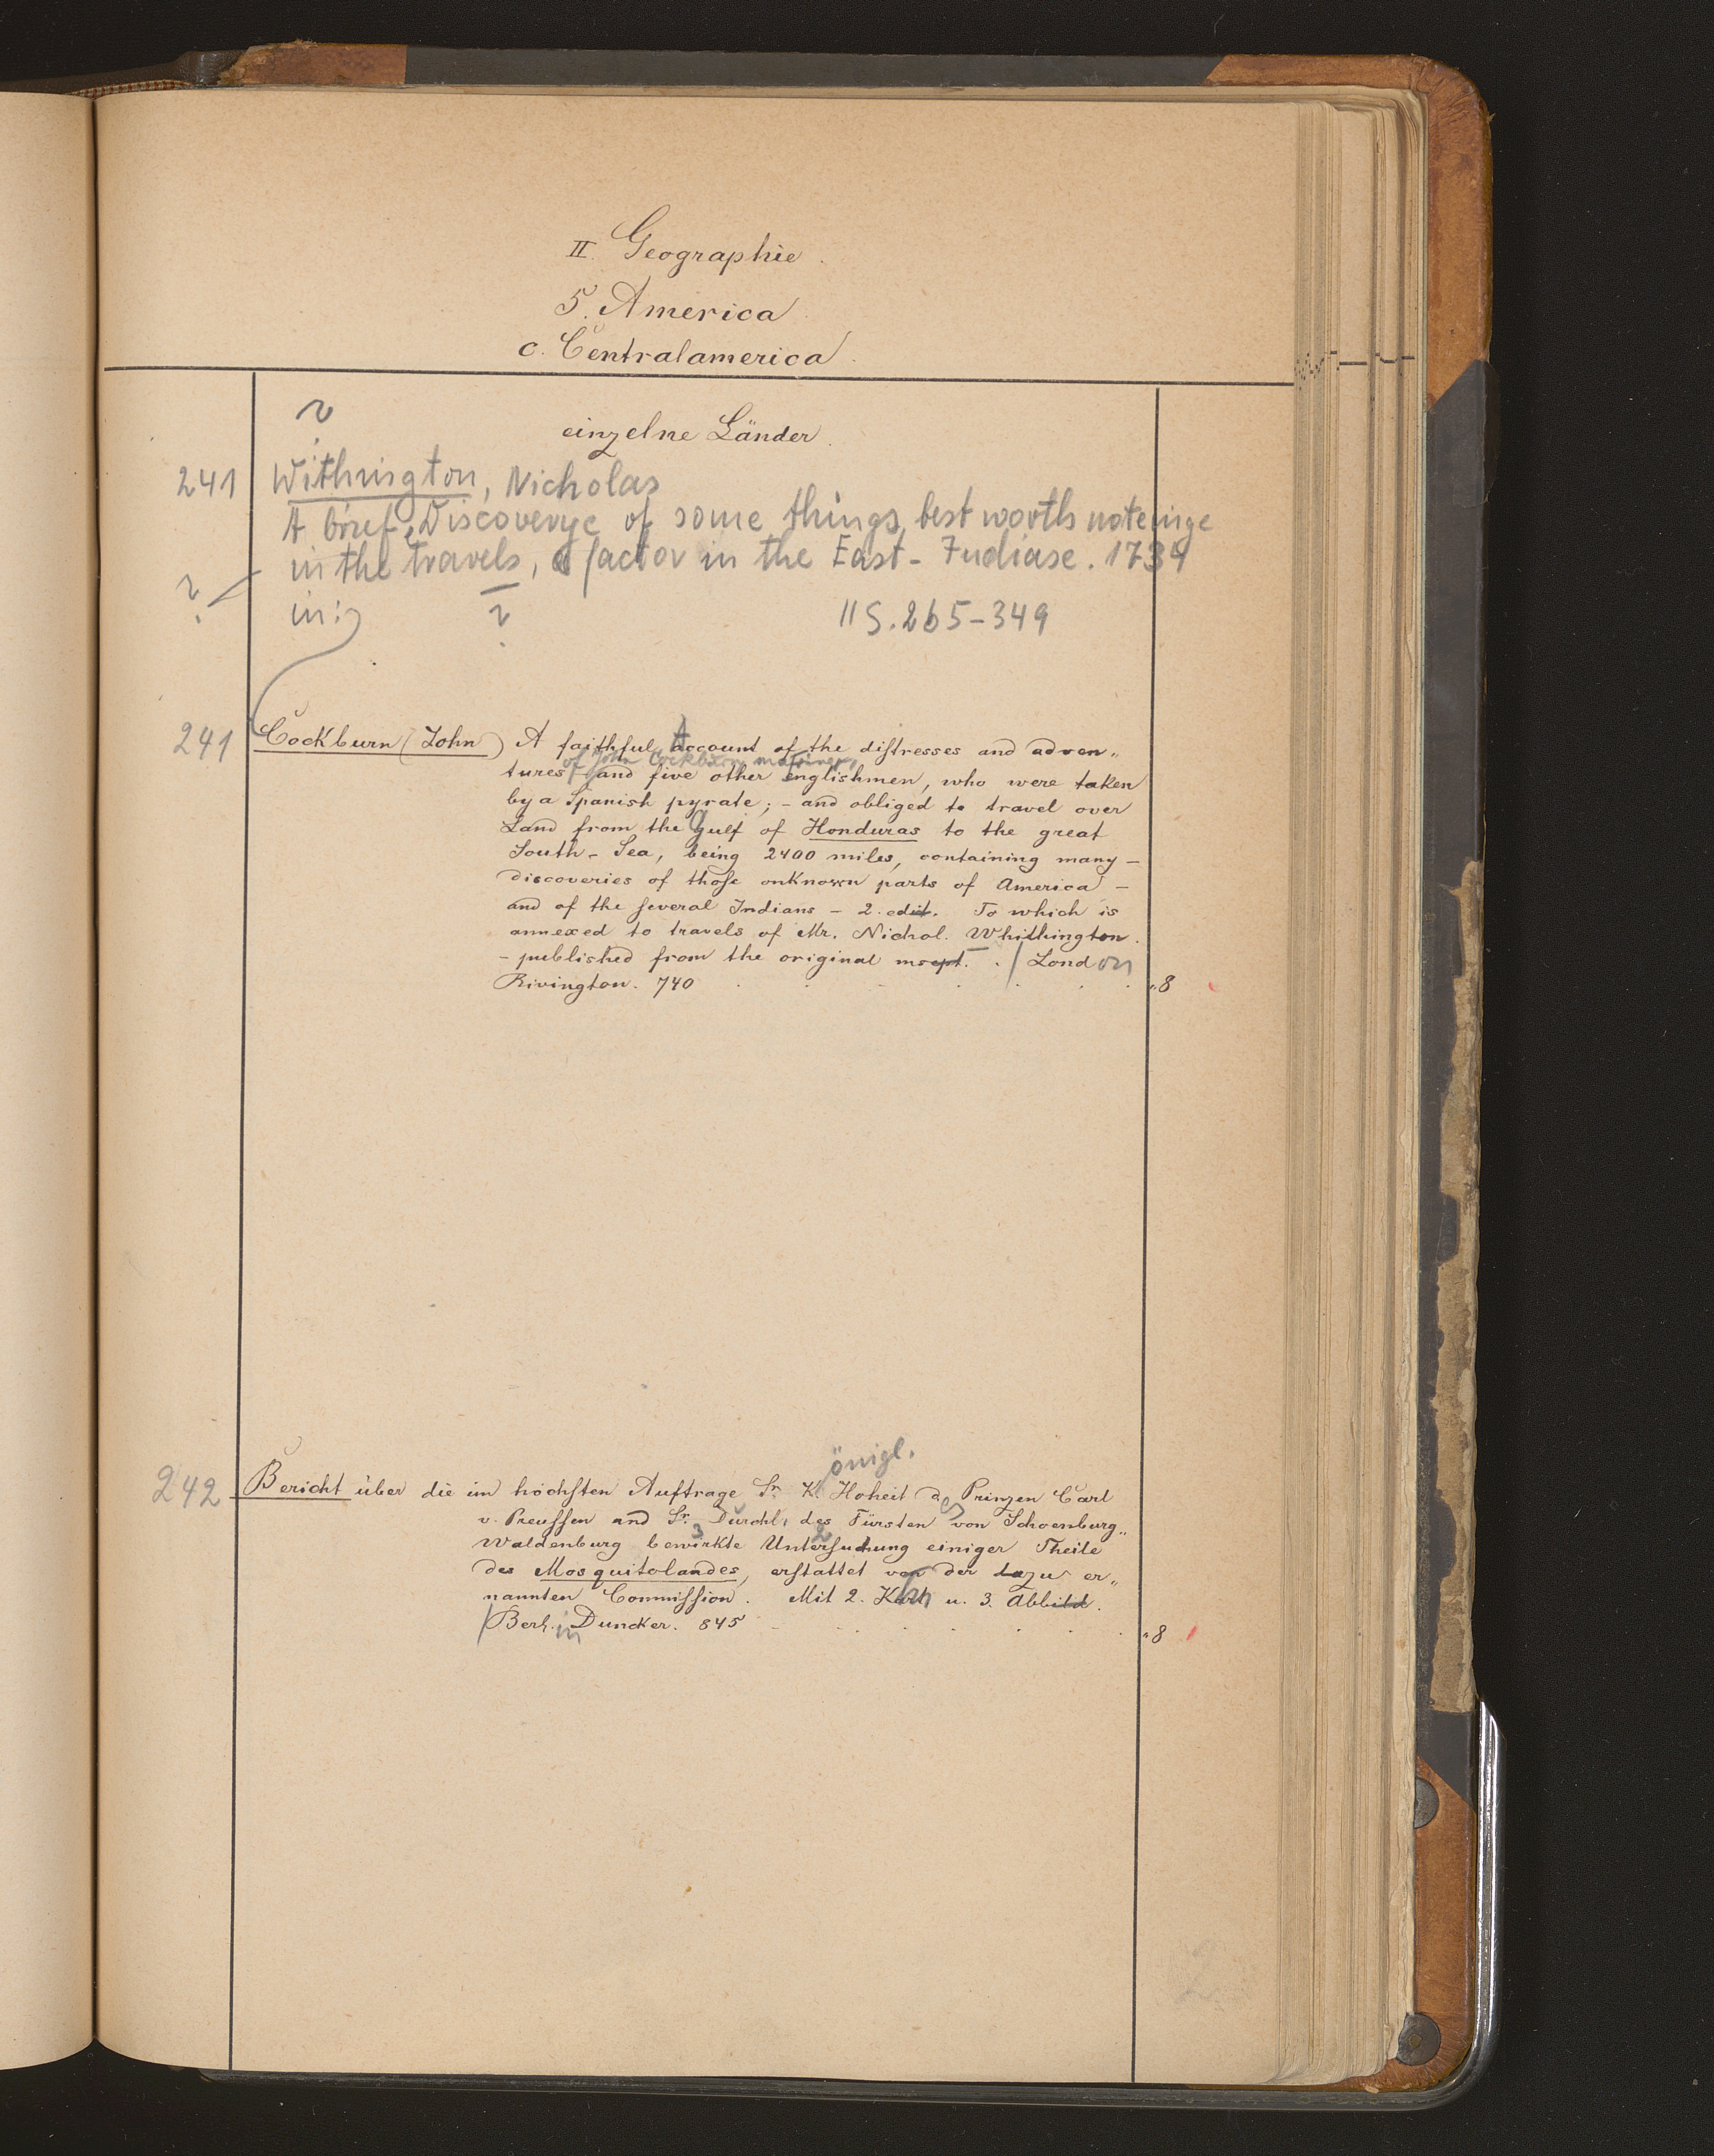 II. Geographie.
5. America
c. Centralamerica.
einzelne Länder.
?
241 Withington, Nicholas
A brief Discoverye of some things best worth noteinge
in the travels, a factor in the East-Indiase. 1734
? in: ? 11 S. 265-349
241 Cockburn (John) A faithful Account of the distresses and adven„
of John Cockburn, mariner,
tures and five other englishmen, who were taken
by a Spanish pyrate; - and obliged to travel over
Land from the Gulf of Honduras to the great
South-Sea, being 2400 miles, containing many -
discoveries of those onknown parts of America -
and of the several Indians - 2. edit. To which is
annexed to travels of Mr. Nichol. Whithington.
- published from the original mscpt. . / London
Rivington. 740 . . . . . . „8
önigl.
242 Bericht über die im höchsten Auftrage Sr. K. Hoheit des Prinzen Carl
v. Preussen and Sr. Durchl. des Fürsten von Schoenburg„
3 2
Waldenburg bewirkte Untersuchung einiger Theile
des Mosquitolandes, erstattet von der dazu er„
nannten Commission. Mit 2. Kart u. 3. Abbild.
/ Berlin Duncker. 845 - . . . . . . . „8
2